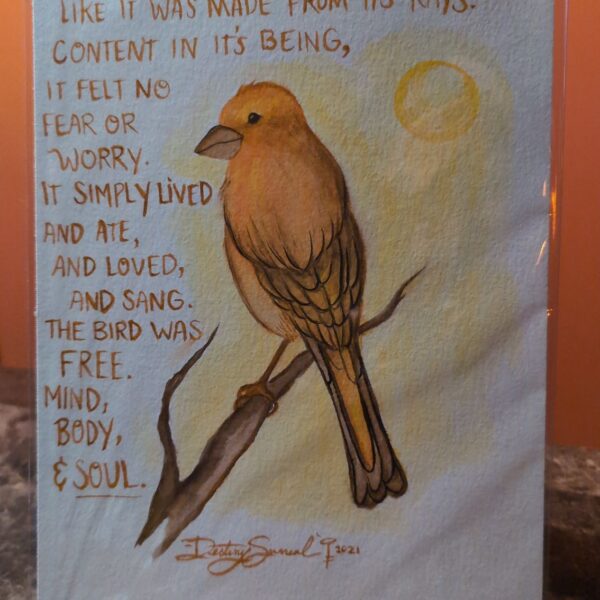 LIKE IT WAS MADE FROM ITS RAYS.
CONTENT IN IT'S BEING,
IT FELT NO
FEAR OR
WORRY.
IT SIMPLY LIVED
AND ATE,
AND LOVED,
AND SANG.
THE BIRD WAS
FREE.
MIND,
BODY,
& SOUL.
"Destiny 2021